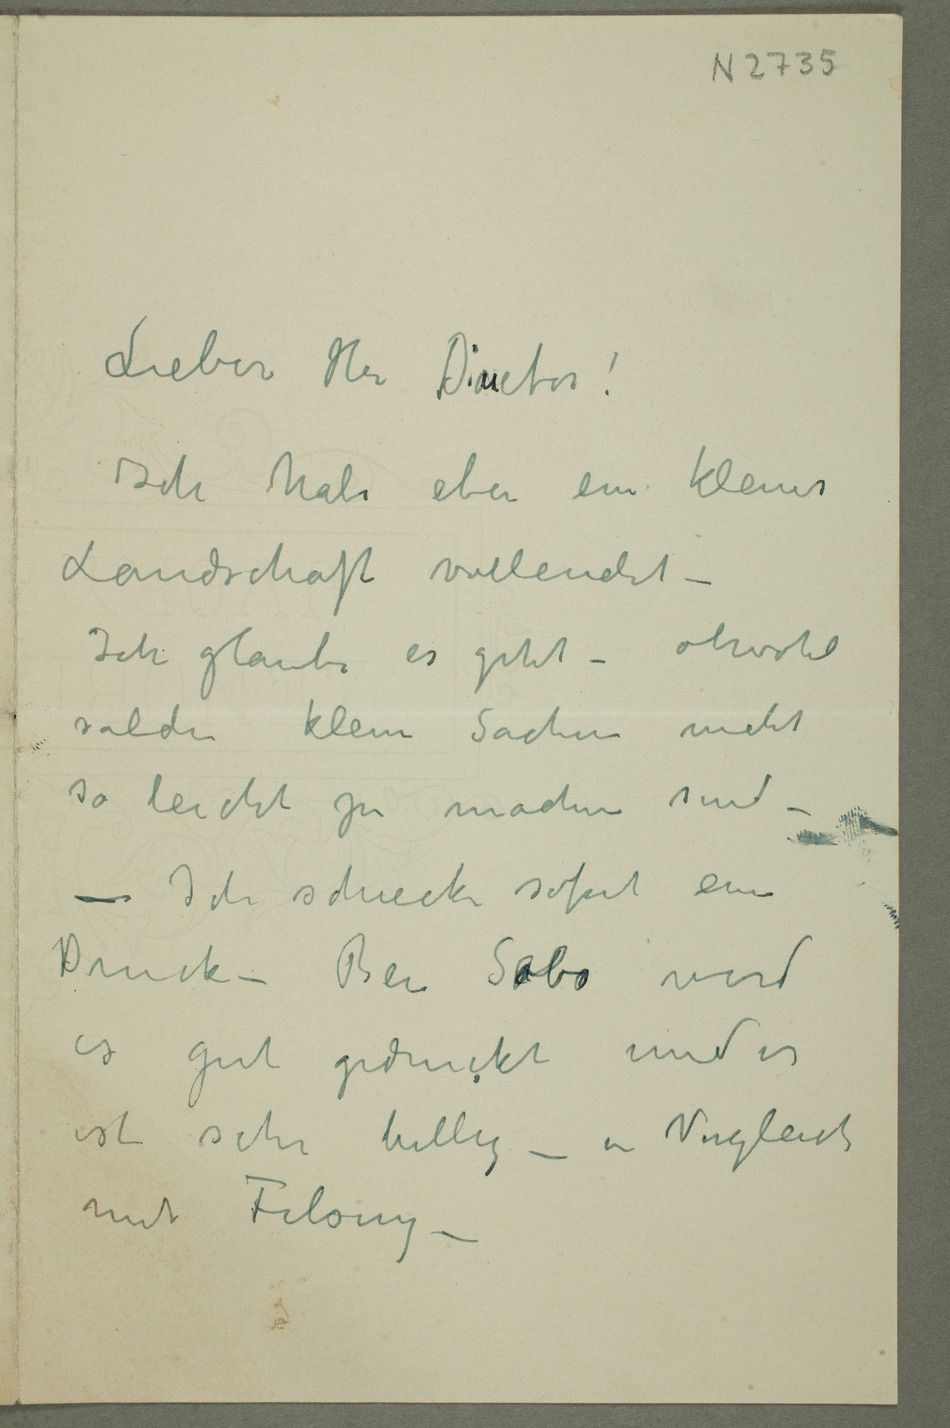 N 2735
Lieber Herr Director!
Ich habe eben ein kleines
Landschaft vollendet –
Ich glaube es geht – obwohl
solche kleine Sachen nicht
so leicht zu machen sind –
– Ich schicke sofort ein
Druck – Bei Sabo wird
es gut gedruckt und es
ist sehr billig – in Vergleich
mit Felsing –